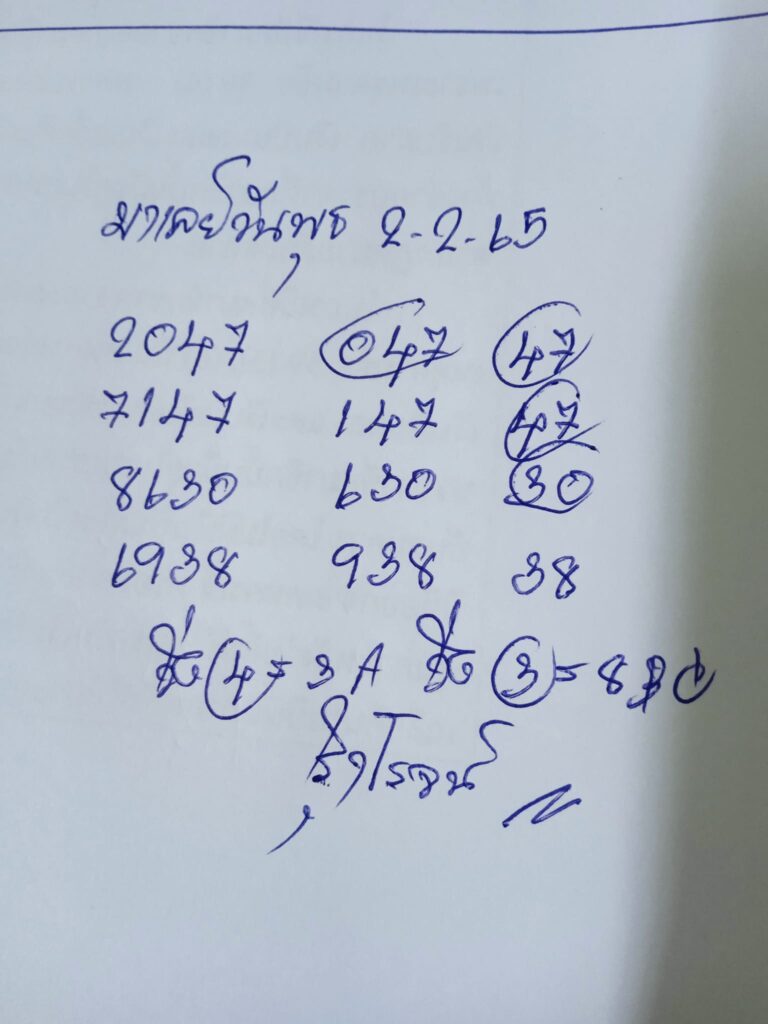 มาเลย์วันพุธ 2-2-65
2047 047 47
7147 147 47
8630 630 30
6938 938 38
วิ่ง 4 = 3 A วิ่ง 3 = 8
รุ่งโรจน์